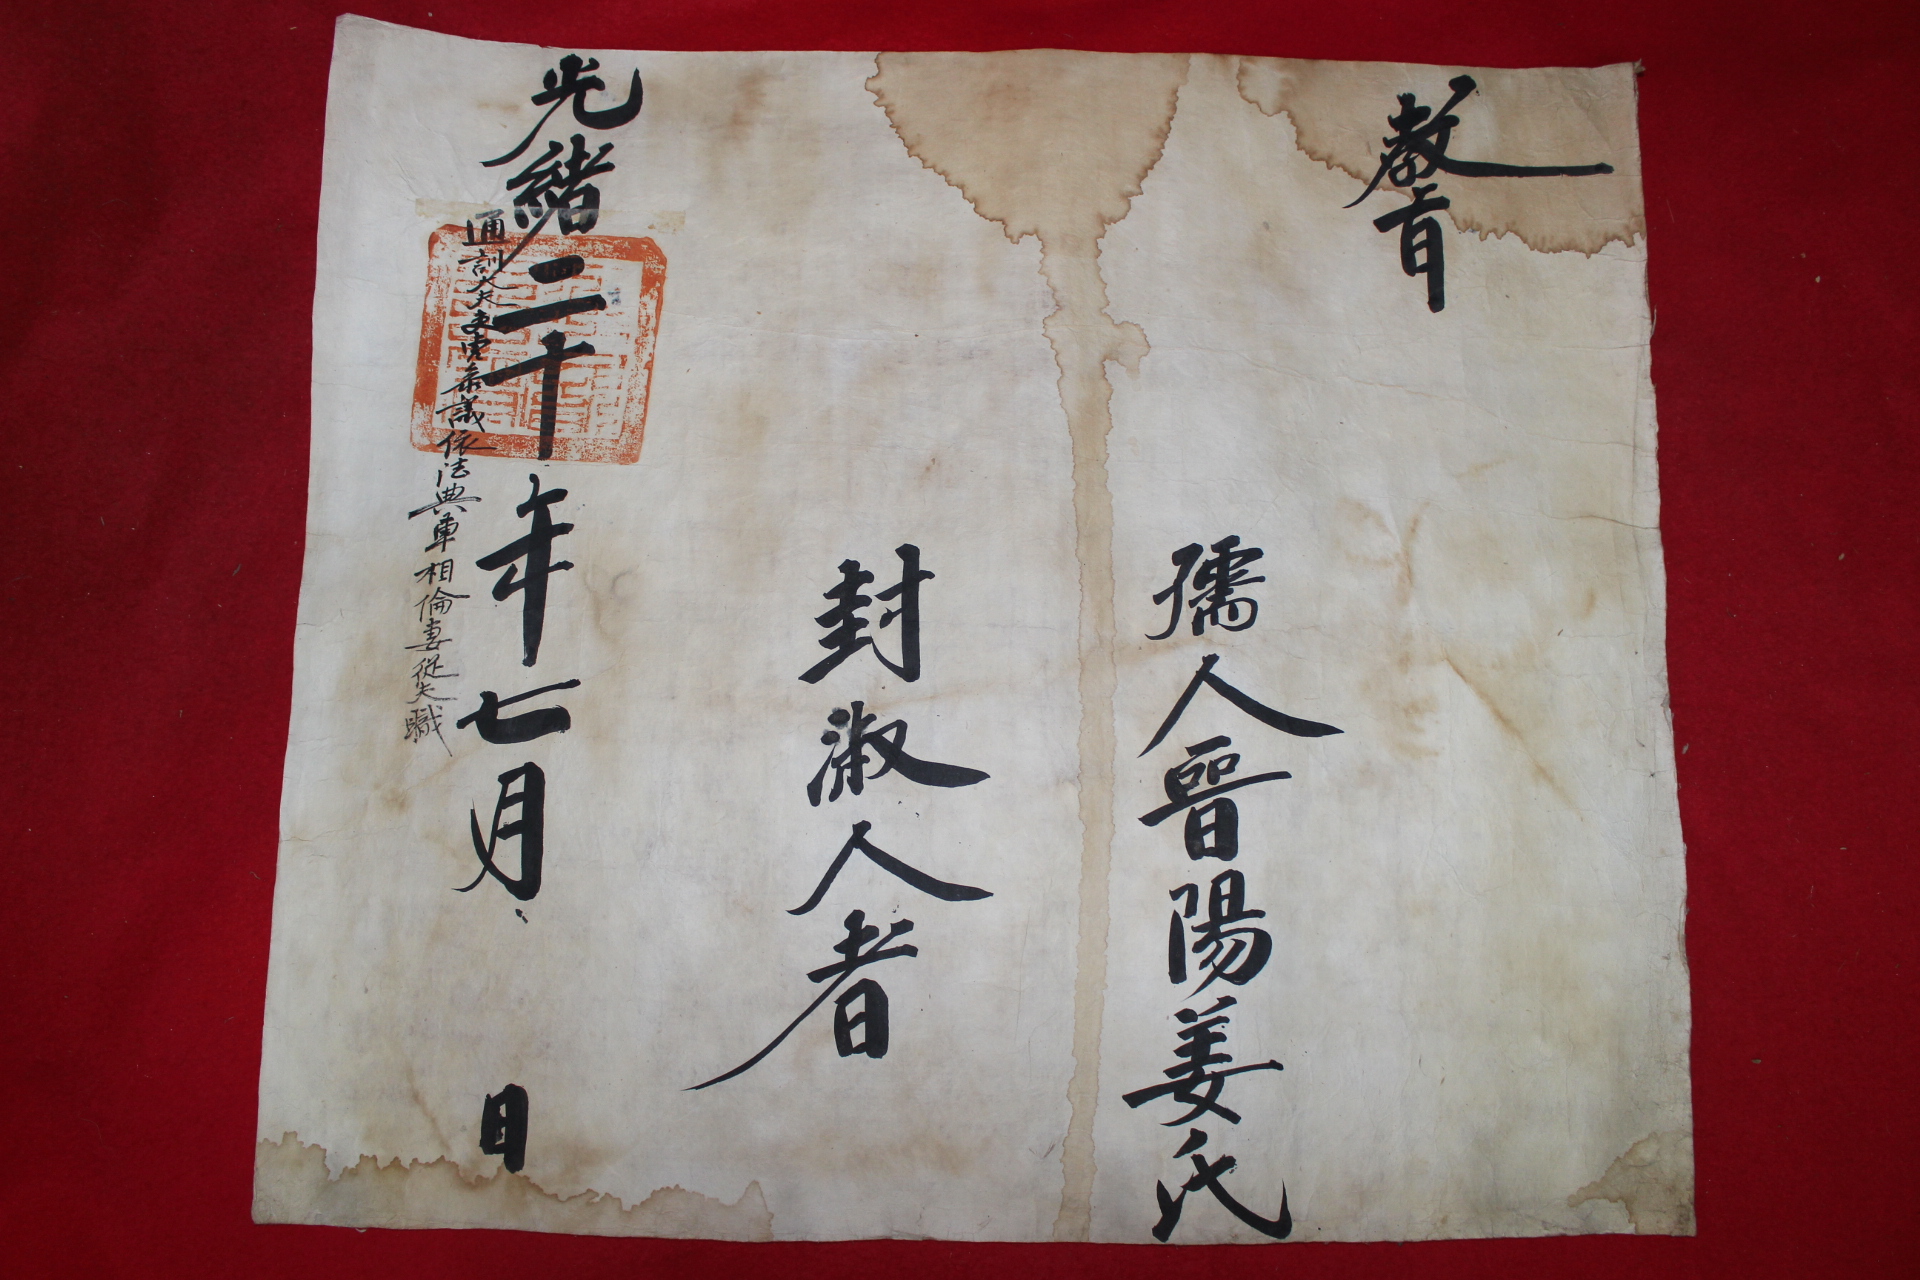 教旨
孺人晉陽姜氏
封淑人者
光緒二十年七月 日
通訓大夫吏曹參議依法典車相倫妻從夫職